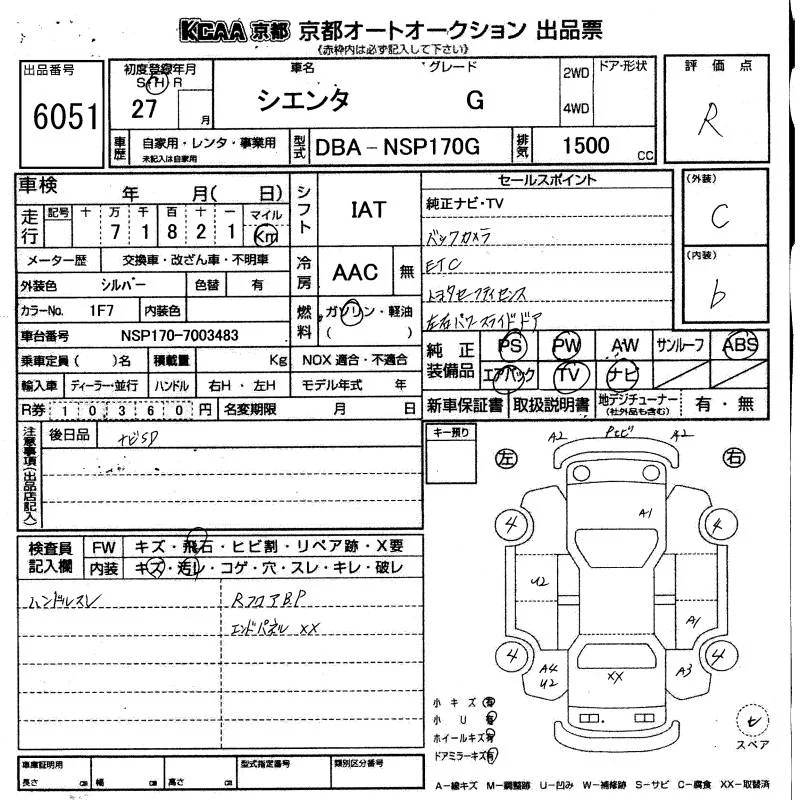 KCAA 京都 京都オートオークション 出品票
《赤枠内は必ず記入して下さい》
出品番号
6051
初度登録年月
S H R
27 月
車名 グレード
シエンタ G
2WD
4WD
ドア・形状
評価点
R
車歴 自家用・レンタ・事業用
未記入は自家用
型式 DBA-NSP170G
排気 1500 cc
車検 年 月( 日)
走行 記号 十 万 千 百 十 一 マイル
7 1 8 2 1 Km
メーター歴 交換車・改ざん車・不明車
外装色 シルバー 色替 有
カラーNo. 1F7 内装色
車台番号 NSP170-7003483
乗車定員( )名 積載量 Kg NOX 適合・不適合
輸入車 ディーラー・並行 ハンドル 右H・左H モデル年式 年
R券 10360 円 名変期限 月 日
シフト IAT
冷房 AAC 無
燃料 ガソリン・軽油
( )
セールスポイント
純正ナビ・TV
バックカメラ
ETC
トヨタセーフティセンス
左右パワースライドドア
(外装)
C
(内装)
b
純正装備品 PS PW AW サンルーフ ABS
エアバック TV ナビ
新車保証書 取扱説明書 地デジチューナー
(社外品も含む) 有・無
注意事項(出品店記入)
後日品 ナビSD
キー預り
検査員記入欄
FW キズ・飛石・ヒビ割・リペア跡・X要
内装 キズ・汚レ・コゲ・穴・スレ・キレ・破レ
ハンドルスレ RフロアB.P
エンドパネル XX
左 右
A2 A2
A1
4 4
U2
A1
4 4
A4
U2
XX
A3
小キズ 有
小U 有
ホイールキズ 有
ドアミラーキズ 有
スペア
車庫証明用
長さ cm 幅 cm 高さ cm
型式指定番号 類別区分番号
A-線キズ M-調整跡 U-凹み W-補修跡 S-サビ C-腐食 XX-取替済